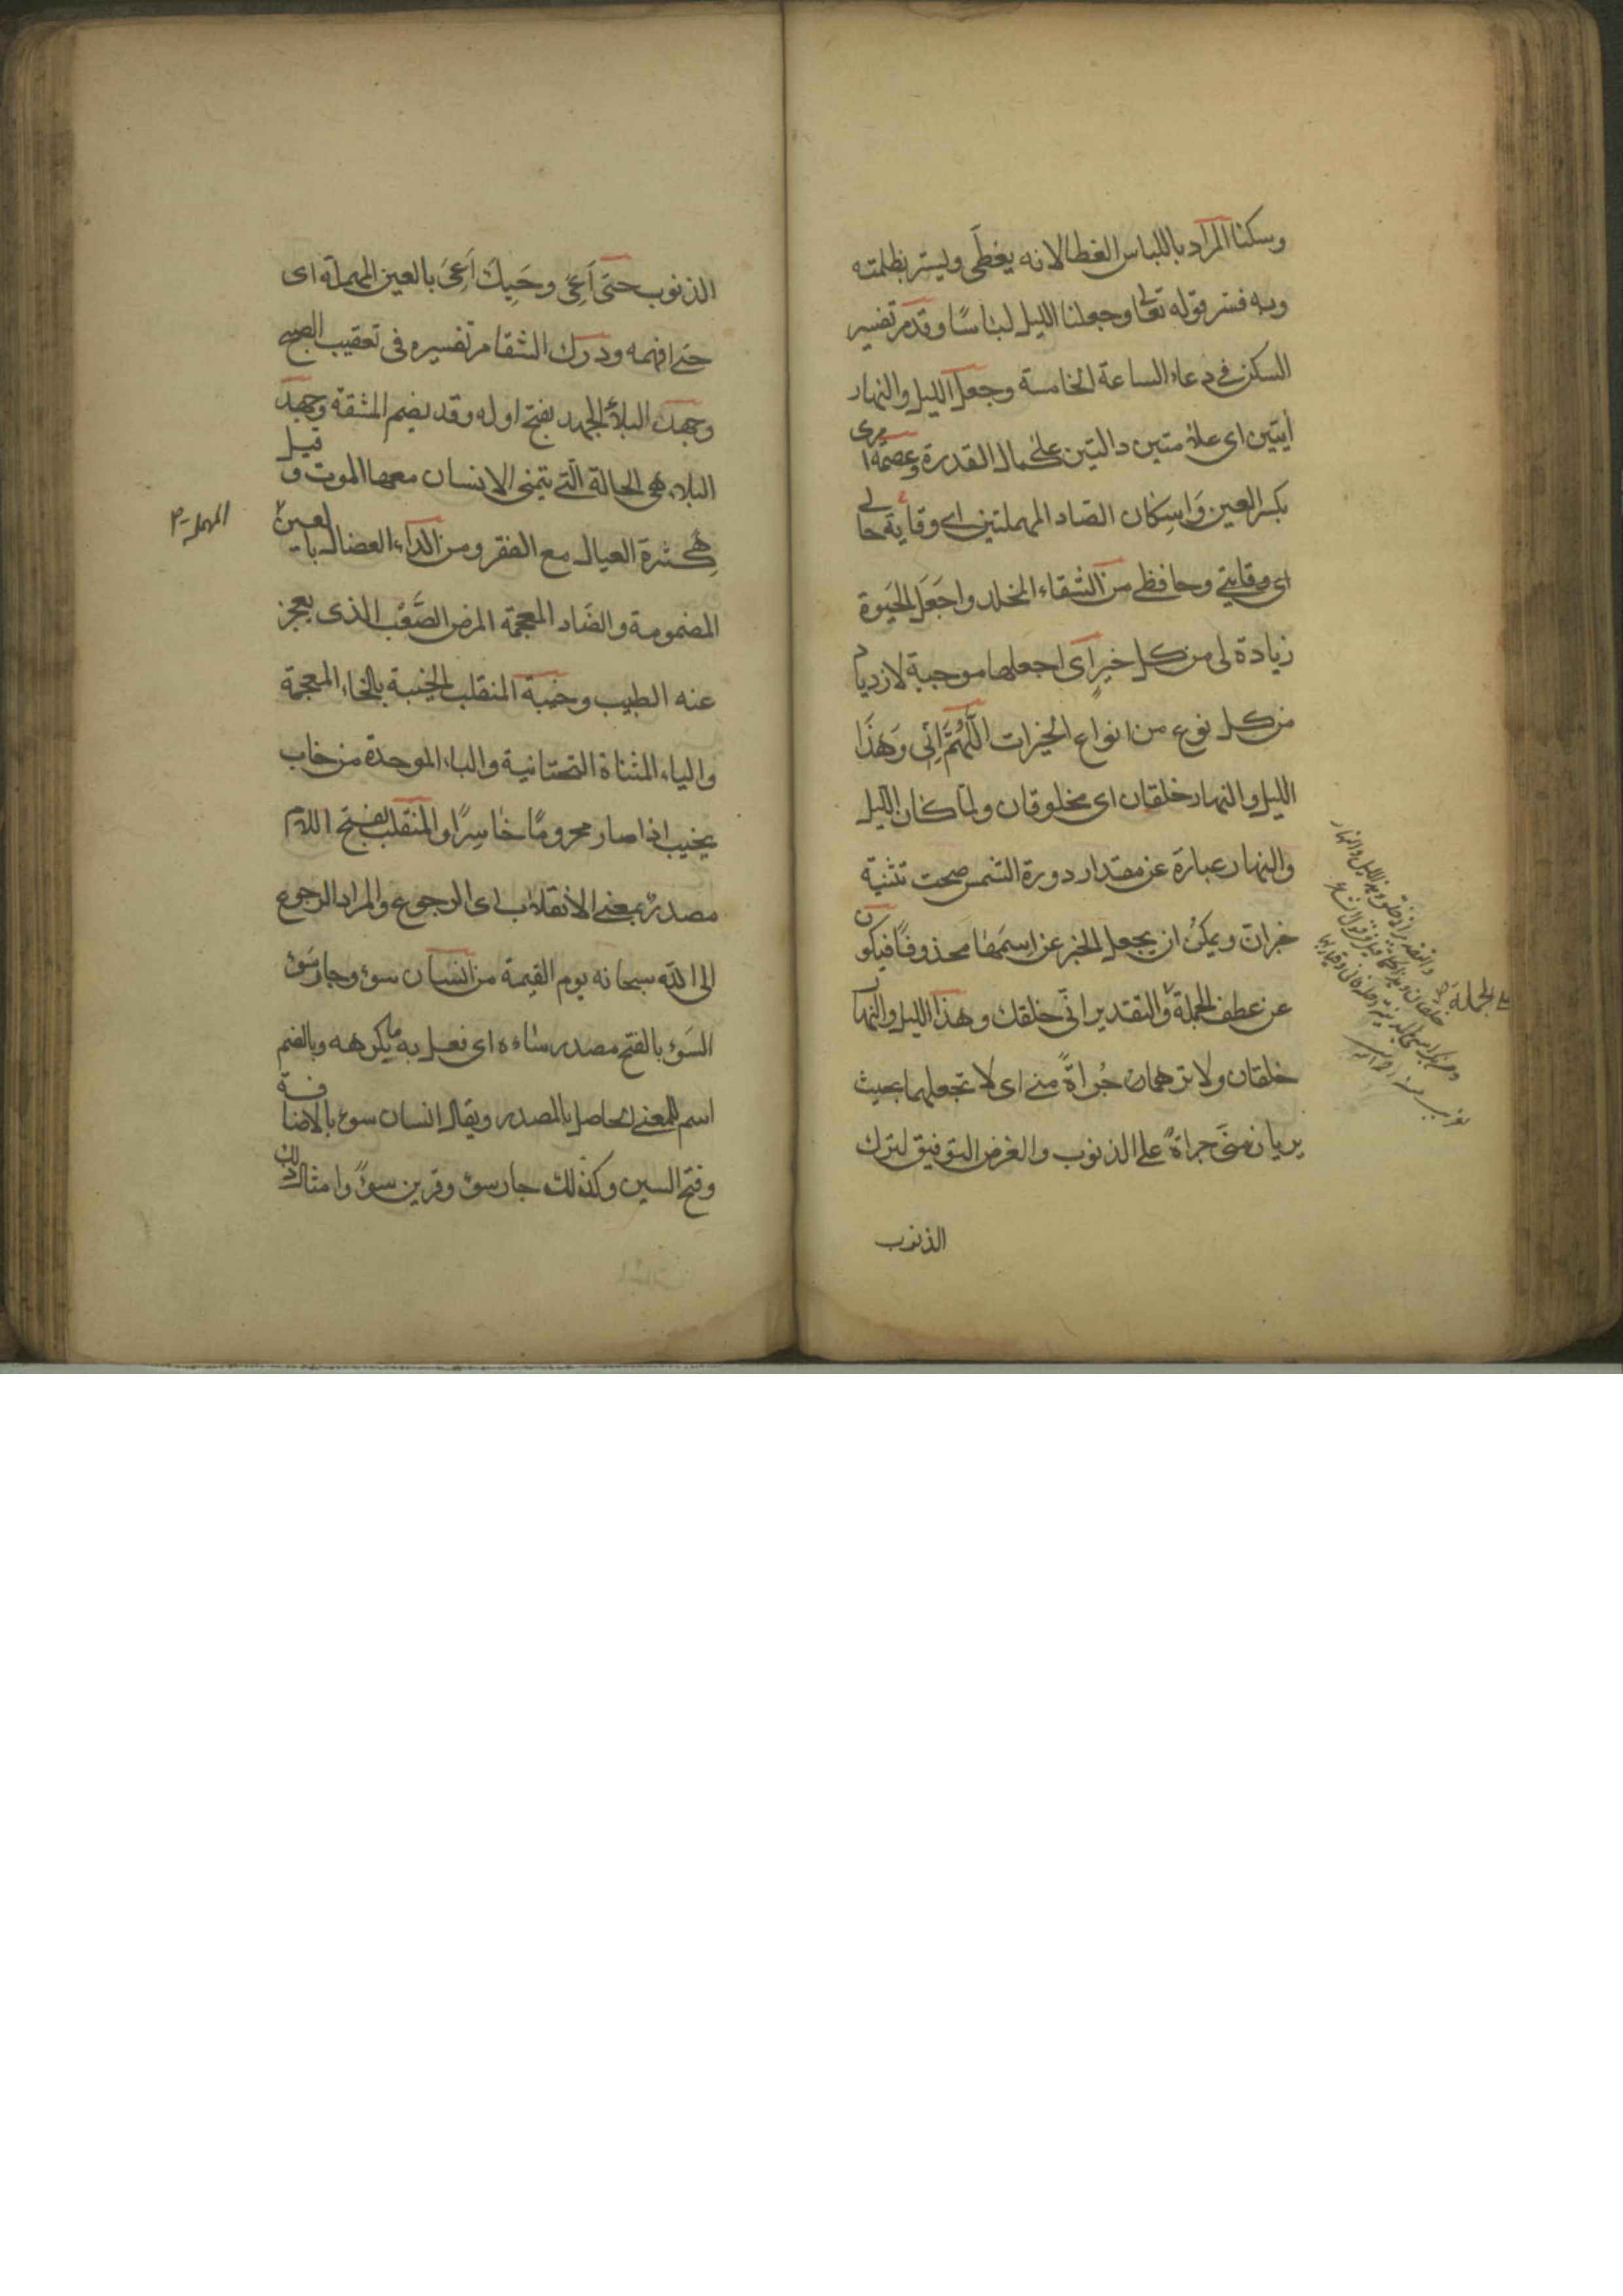 وسكنا المراد باللباس الغطا لانه يغطى ويستر بظلمته
وبه فسر قوله تعالى وجعلنا الليل لباسًا وقد مر تفسير
السكن في دعاء الساعة الخامسة وجعل الليل والنهار
آيتين اى علامتين دالتين على كمال القدرة وعصمة امرى
بكسر العين وَاسِكان الصاد المهملتين اى وقاية حالى
اى وقايتى وحافظى من الشقاء المخلد واجعَل الحيوة
زيادة لى من كل خيرٍ اى اجعلها موجبة لازدياد
من كل نوع من انواع الخيرات اللّهُمَّ اِنّى وَهذَا
الليل والنهار خلقان اى مخلوقان ولما كان الليل
والنهار عبارة عن مقدار دورة الشمس صحت تثنية
خبران ويمكن ان يجعل الخبر عن اسمها محذوفًا فيكون
عن عطف الجملة والتقدير انّى خلقك وهذا الليل والنهار
خلقان ولا ترهما جُرأةً منى اى لا تجعلهما بحيث
يريان منى جراة على الذنوب والغرض التوفيق لترك
الذنوب
على الجملة
الذنوب حتى اَعِىَ وحَيِكَ اَعِىَ بالعين المهملة اى
حتى افهمه ودرك الشقا مر تفسيره فى تعقيب الصبح
وجهد البلاء الجهد بفتح اوله وقد يضم المشقة وجهد
البلاء هى الحالة الّتى يتمنى الانسان معها الموت وقيل
هى كثرة العيال مع الفقر ومن الداء العضال بالعين
المهملة
المضمومة والضاد المعجمة المرض الصَّعْب الذى يعجز
عنه الطبيب وخيبة المنقلب الخيبة بالخاء المعجمة
والياء المثناة التحتانية والباء الموحدة من خاب
يخيب اذا صار محرومًا خاسِرًا والمنقلب بفتح اللام
مصدرٌ بمعنى الانقلاب اى الرجوع والمراد الرجوع
الى الله سبحانه يوم القيمة من انسان سوء وجار سَوْء
السَوء بالفتح مصدر ساءه اى فعل به ما يكرهه وبالضم
اسم للمعنى الحاصل بالمصدر ويقال انسان سوء بالاضافة
وفتح السين وكذلك جار سوء وقرين سوء وامثال ذلك